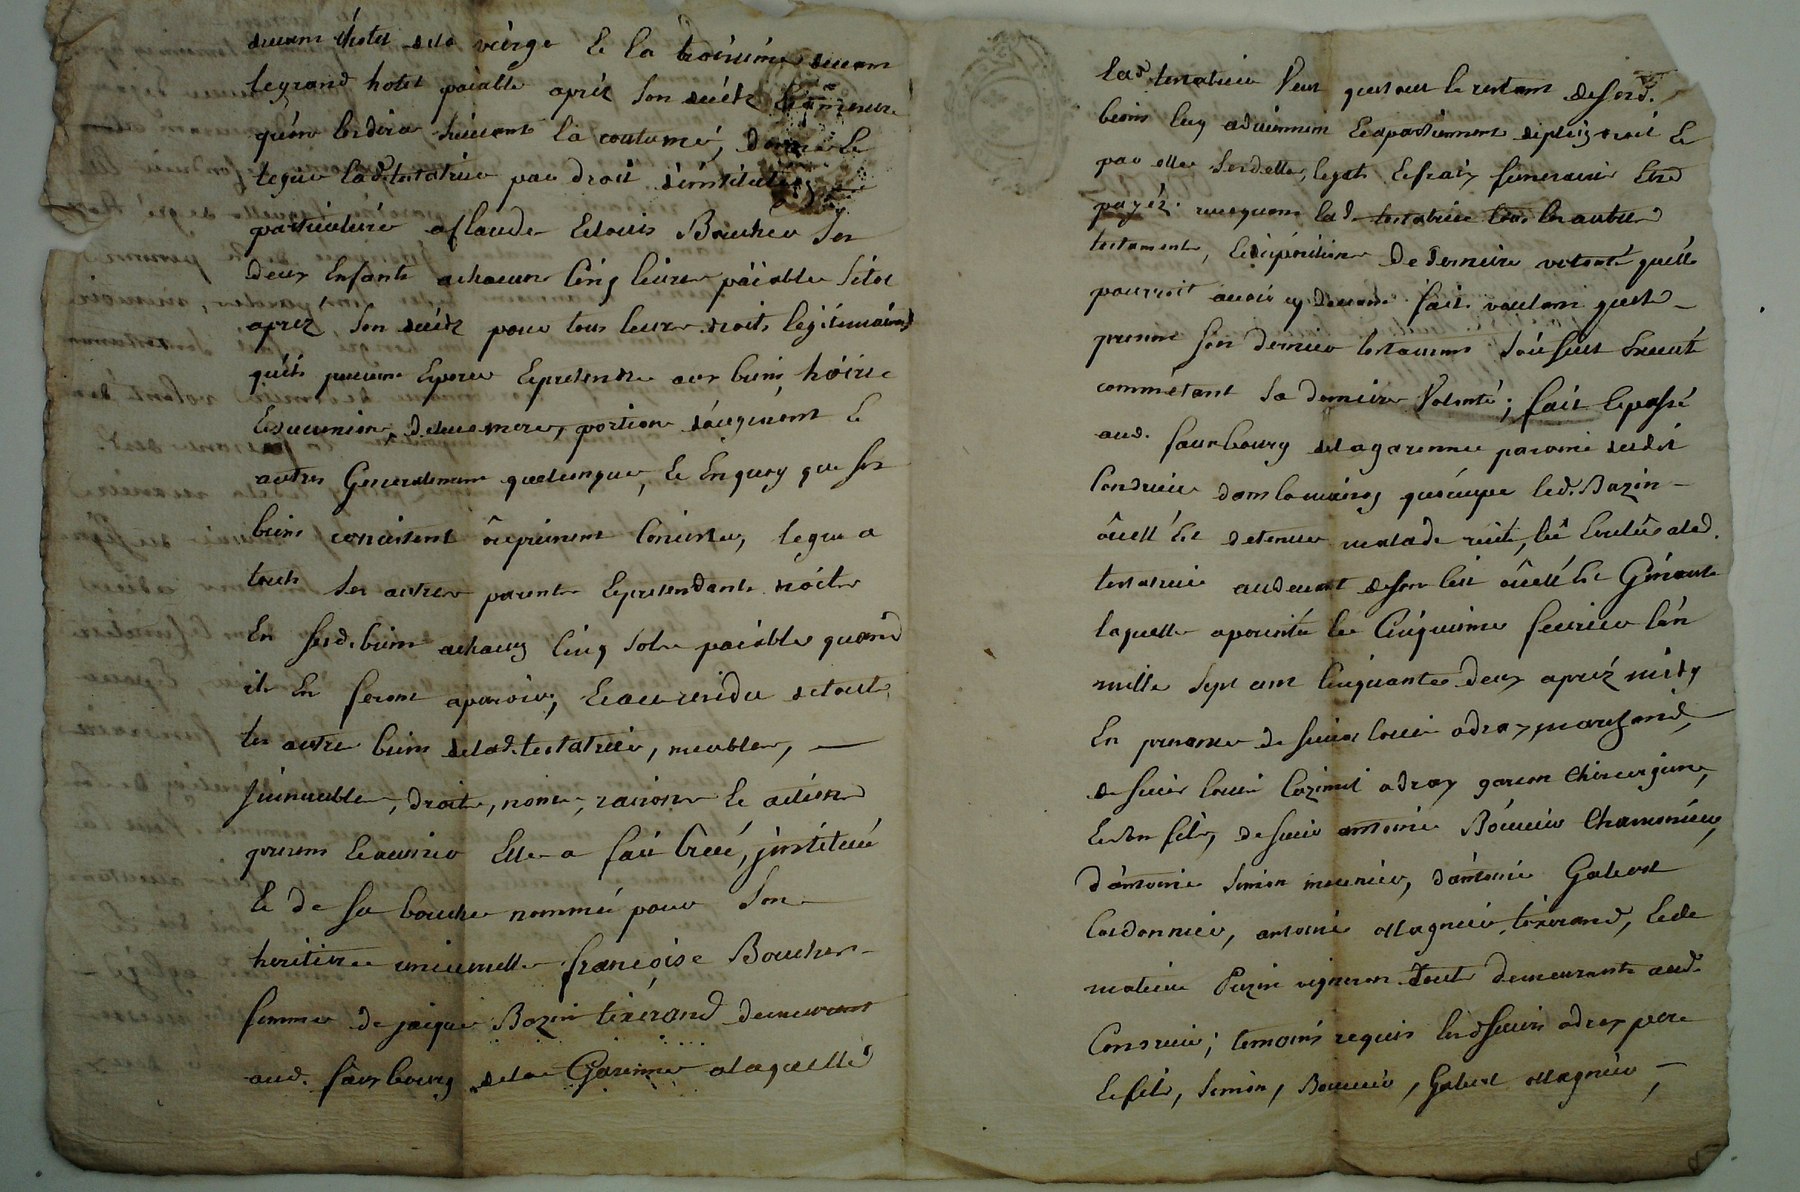 devant l'hotel de la vierge & la troisieme devant
le grand hotel paiable aprés son decés & a mesure
qu'on les dira suivant la coutume, donne &
legue lad. testatrice par droit d'institution
particuliere a Claude & Louis Boucher ses
deux enfants a chacun cinq livres paiable sitot
aprés son decés pour tous leurs droits legitimaires
qu'ils peuvent esperer & pretendre aux biens hoirie
& succession de leur mere, portion d'augment &
autres generalement quelconques, & en quoy que ses
biens consistent & puissent consister, legue a
touts ses autres parents & pretendants droits
en sesd. biens a chacun cinq sols paiable quand
ils en feront aparoir, & au residu de touts
les autres biens de lad. testatrice, meubles,
immeubles, droits, noms, raisons & actions
presens & avenir elle a fait creé, institué
& de sa bouche nommé pour son
heritiere universelle françoise Boucher
femme de jacque Bazin tixerand demeurant
aud. faux bourg de la Garenne a laquelle
lad. testatrice veut que tout le restant de sesd.
biens luy adviennent & apartiennent de plein droit &
par elle sesd. dettes, legats & fraix funeraires etre
payéz. revoquant lad. testatrice tous les autres
testaments, & dispositions de derniere volonté qu'elle
pourroit avoir cy devant fait voulant que le
present son dernier testament soit seul executé
comme etant sa derniere volonté; fait & passé
aud. faux bourg de la garenne paroisse dudit
Condrieu dans la maison qu'occupe led. Bazin
ou ell'est detenue malade recité, lû & relû a lad.
testatrice au devant de son lit ou ell'est gisante
laquelle a persisté le cinquieme fevrier l'an
mille sept cent cinquante deux aprés midy
en presence de sieur Louis adray marchand,
de sieur Louis Cazimil adray garçon chirurgien,
& son fils, de sieur antoine Bouvier Chamonieu,
d'antoine simon meunier, d'antoine Gabert
Cordonnier, antoine Magnien tixerand, & de
mathieu Pazin vigneron tout demeurants aud.
Condrieu; temoins requis lesd. sieurs adray pere
& fils, simon, Bouvier, Gabert Magnien